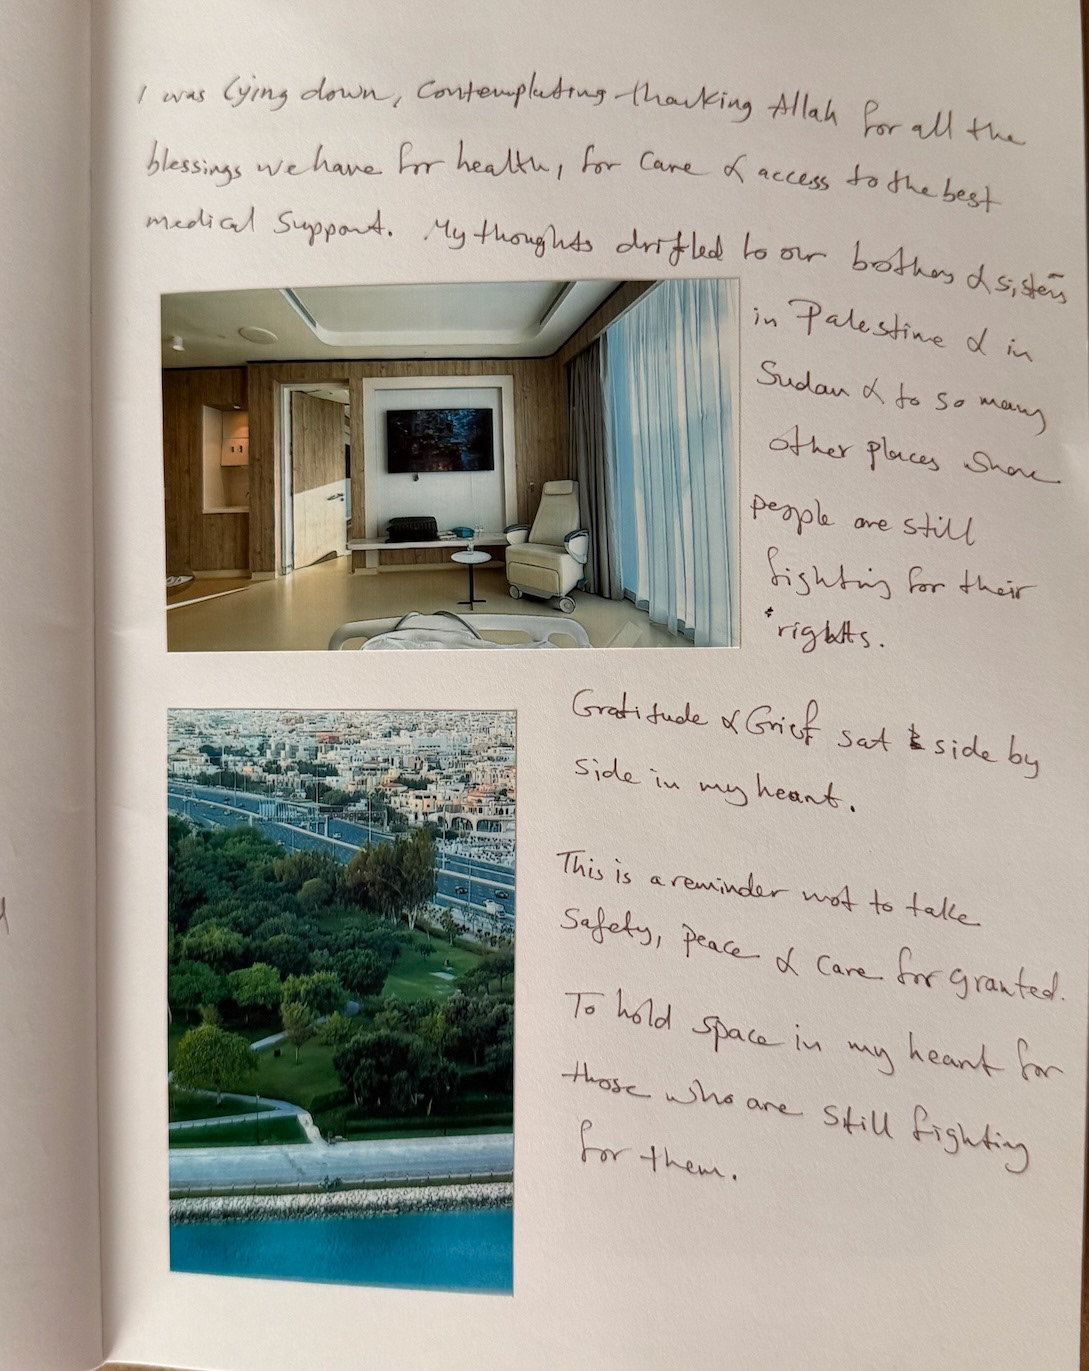 I was lying down, contemplating thanking Allah for all the
blessings we have for health, for care & access to the best
medical support. My thoughts drifted to our brothers & sisters
in Palestine & in
Sudan & to so many
other places where
people are still
fighting for their
rights.
Gratitude & Grief sat side by
side in my heart.
This is a reminder not to take
safety, peace & care for granted.
To hold space in my heart for
those who are still fighting
for them.